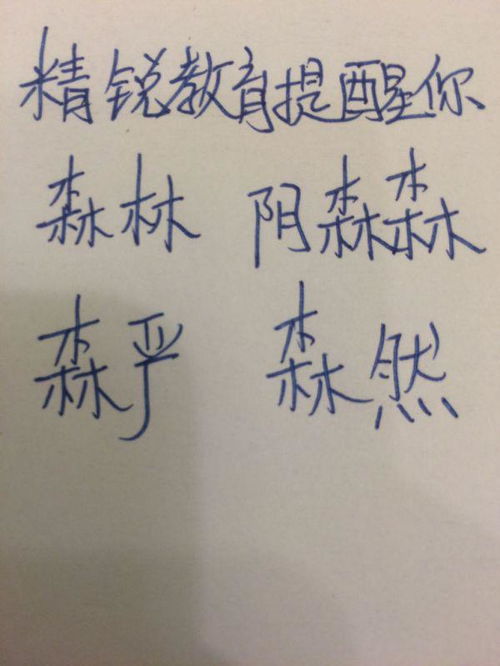 精锐教育提醒你
森林 阴森森
森严 森然